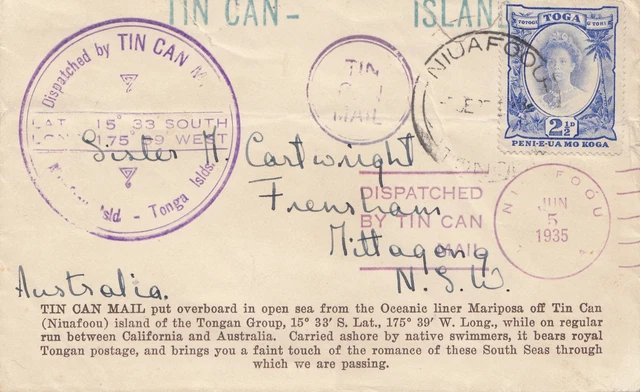 TIN CAN- ISLAN
TOGA
2½D
PENI-E-UA MO KOGA
NIUAFOOU
Dispatched by TIN CAN M
LAT. 15° 33 SOUTH
175° 39 WEST
Isld - Tonga Islds.
TIN
MAIL
Sister M. Cartwright
Frensham
Mittagong
N.S.W.
Australia.
DISPATCHED
BY TIN CAN
MAIL
NI FOOU
JUN
5
1935
TIN CAN MAIL put overboard in open sea from the Oceanic liner Mariposa off Tin Can
(Niuafoou) island of the Tongan Group, 15° 33' S. Lat., 175° 39' W. Long., while on regular
run between California and Australia. Carried ashore by native swimmers, it bears royal
Tongan postage, and brings you a faint touch of the romance of these South Seas through
which we are passing.